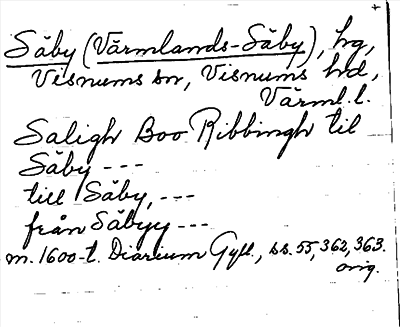 Säby (Värmlands-Säby), hg,
Visnums sn, Visnums hd,
Värml. l.
Saligh Boo Ribbingh til
Säby ---
till Säby, ---
från Säbyy ---
m. 1600-t. Diarium Gyll., ss. 55, 362, 363.
orig.